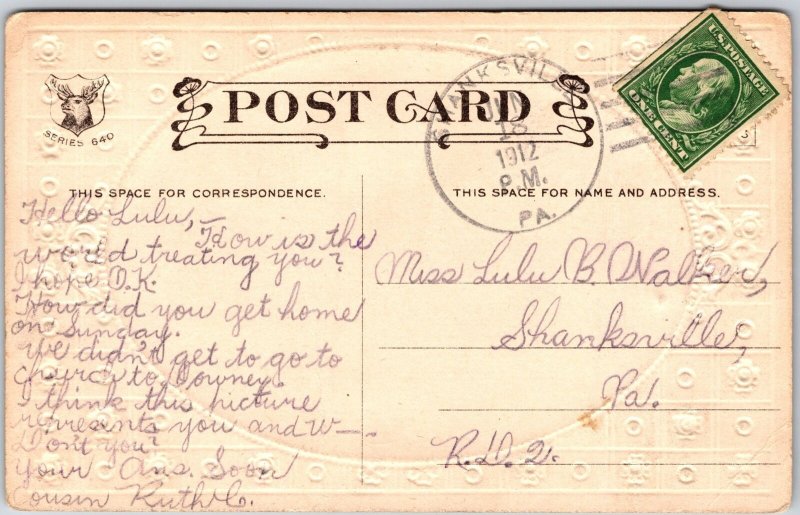 POST CARD
SERIES 640
SHANKSVILLE
JUN
18
1912
P.M.
PA.
U.S. POSTAGE
ONE CENT
THIS SPACE FOR CORRESPONDENCE.
THIS SPACE FOR NAME AND ADDRESS.
Hello Lulu,—
How is the
world treating you?
I hope O.K.
How did you get home
on Sunday.
We didn't get to go to
church to Downey.
I think this picture
represents you and W—.
Don't you?
Your Ans. Soon
Cousin Ruth C.
Miss Lulu B. Walker,
Shanksville,
Pa.
R.D. 2.